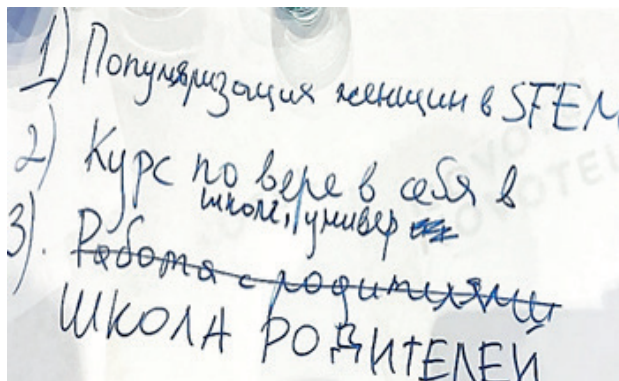 1) Популяризация женщин в STEM
2) Курс по вере в себя в
школе, универ
3). Работа с родителями
ШКОЛА РОДИТЕЛЕЙ
NOVOTEL
NOVOTEL